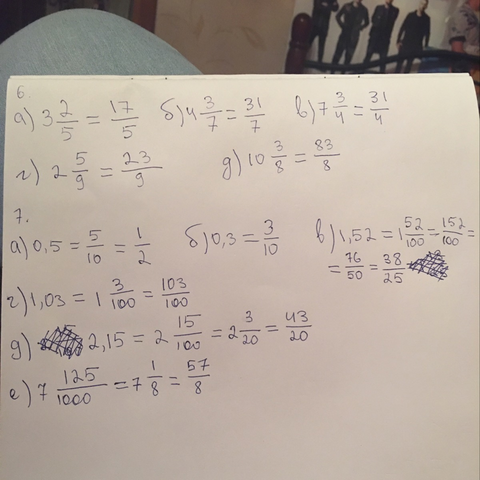 6.
а) 3 2/5 = 17/5 б) 4 3/7 = 31/7 в) 7 3/4 = 31/4
г) 2 5/9 = 23/9 д) 10 3/8 = 83/8
7.
а) 0,5 = 5/10 = 1/2 б) 0,3 = 3/10 в) 1,52 = 1 52/100 = 152/100 =
= 76/50 = 38/25
г) 1,03 = 1 3/100 = 103/100
д) 2,15 = 2 15/100 = 2 3/20 = 43/20
е) 7 125/1000 = 7 1/8 = 57/8